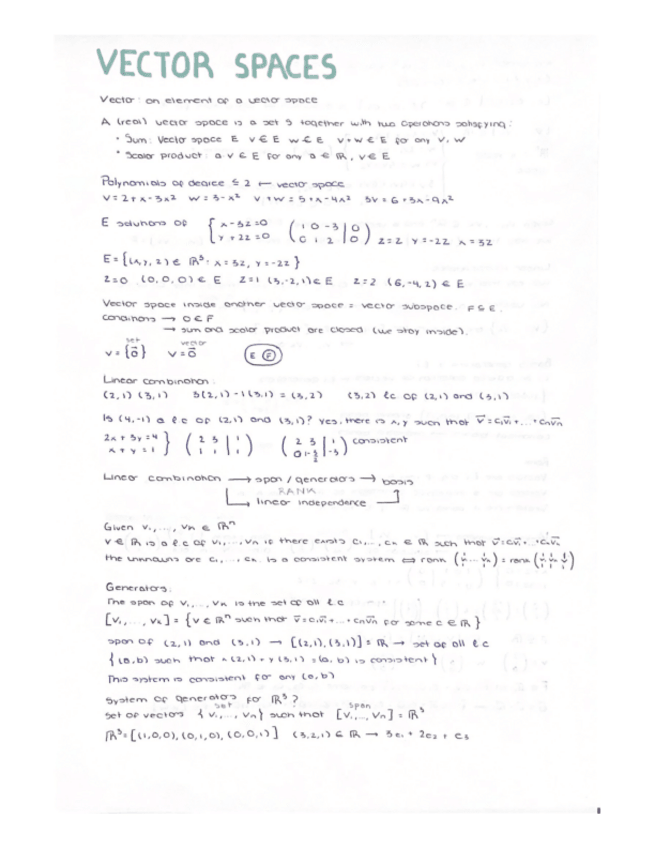 VECTOR SPACES
Vector: an element of a vector space
A (real) vector space is a set S together with two operations satisfying:
• Sum: Vector space E v ∈ E w ∈ E v+w ∈ E for any v, w
• Scalar product: a v ∈ E for any a ∈ ℝ, v ∈ E
Polynomials of degree ≤ 2 ← vector space
V = 2+x-3x² W = 3-x² V+W = 5+x-4x² 3V = 6+3x-9x²
E solutions of { x-3z=0 y+2z=0 ( 1 0 -3 | 0 0 1 2 | 0 ) z=z y=-2z x=3z
E = {(x,y,z) ∈ ℝ³: x=3z, y=-2z}
z=0 (0,0,0) ∈ E z=1 (3,-2,1) ∈ E z=2 (6,-4,2) ∈ E
Vector space inside another vector space = vector subspace. F ⊆ E.
Conditions → 0 ∈ F
→ sum and scalar product are closed (we stay inside).
set vector
v = {0⃗} v = 0⃗ E F
Linear combination:
(2,1) (3,1) 3(2,1) - 1(3,1) = (3,2) (3,2) l.c of (2,1) and (3,1)
Is (4,-1) a l.c of (2,1) and (3,1)? Yes, there is x, y such that v⃗ = c₁v⃗₁ + ... + cₙv⃗ₙ
2x + 3y = 4 x + y = 1 } ( 2 3 | 1 1 1 | 1 ) ( 2 3 | 1 ) consistent
Linear combination → span / generators → basis
RANK
linear independence
Given v₁, ..., vₙ ∈ ℝⁿ
v ∈ ℝ is a l.c of v₁, ..., vₙ if there exists c₁, ..., cₙ ∈ ℝ such that v⃗ = c₁v⃗₁ + ... + cₙv⃗ₙ
the unknowns are c₁, ..., cₙ is a consistent system ⟺ rank = rank
Generators:
The span of v₁, ..., vₙ is the set of all l.c
[v₁, ..., vₙ] = {v ∈ ℝⁿ such that v⃗ = c₁v⃗₁ + ... + cₙv⃗ₙ for some c ∈ ℝ}
span of (2,1) and (3,1) → [(2,1), (3,1)] = ℝ → set of all l.c
{(a,b) such that x(2,1) + y(3,1) = (a,b) is consistent}
This system is consistent for any (a,b)
System of generators for ℝ³?
set span
set of vectors {v₁, ..., vₙ} such that [v₁, ..., vₙ] = ℝ³
ℝ³ = [(1,0,0), (0,1,0), (0,0,1)] (3,2,1) ∈ ℝ → 3e₁ + 2e₂ + e₃